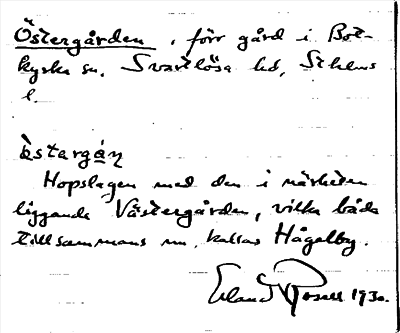 Östergården, förr gård i Bot-
kyrka sn, Svartlösa hd, Sthlms
l.
ὰstargán
Hopslagen med den i närheten
liggande Västergården, vilka båda
tillsammans nu kallas Hågelby.
Erland Rosell 1930.